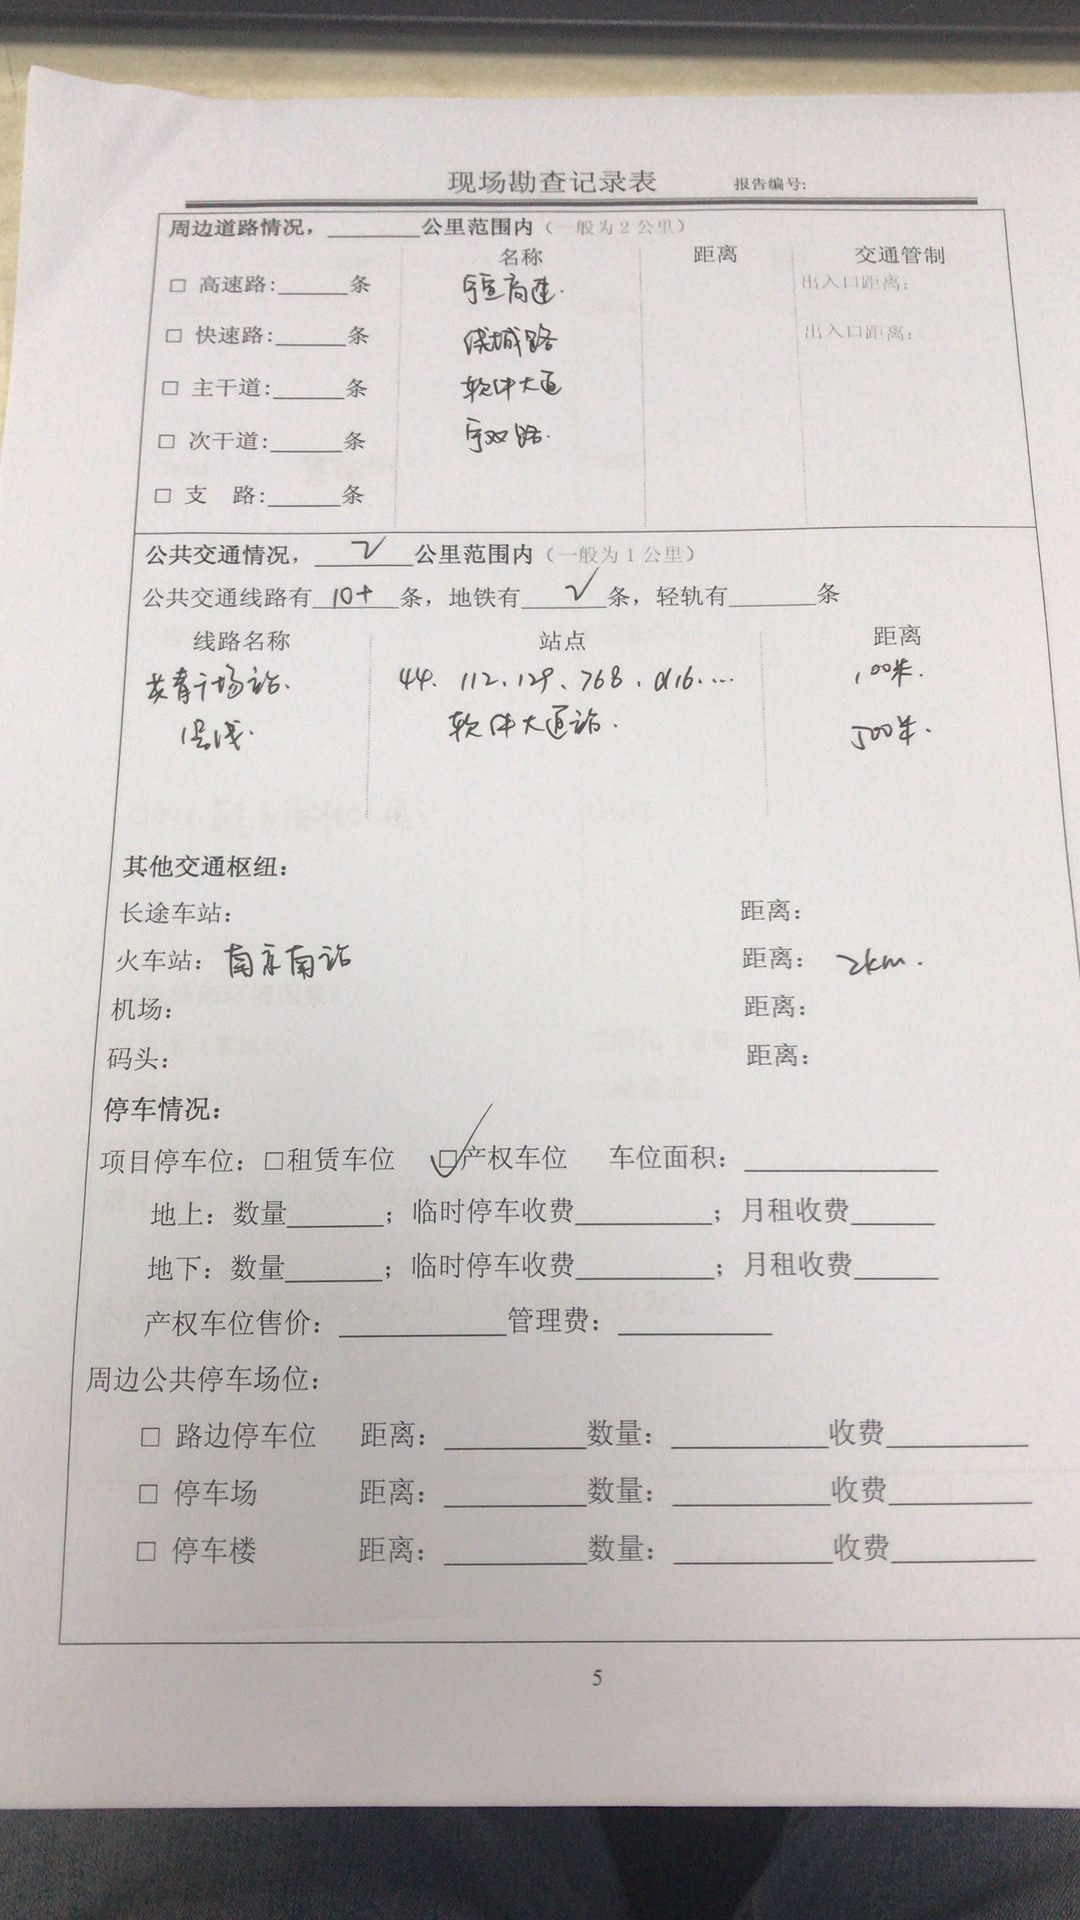 现场勘查记录表 报告编号:
周边道路情况，________公里范围内（一般为2公里）
名称 距离 交通管制
□ 高速路:______条 宁宣高速. 出入口距离:
□ 快速路:______条 绕城路 出入口距离:
□ 主干道:______条 软件大道
□ 次干道:______条 宁双路.
□ 支 路:______条
公共交通情况，___√___公里范围内（一般为1公里）
公共交通线路有_10+_条，地铁有___√___条，轻轨有_______条
线路名称 站点 距离
44. 112、129、768、d16.… 100米.
1号线. 软件大道站. 500米.
其他交通枢纽:
长途车站: 距离:
火车站: 南京南站 距离: 2km.
机场: 距离:
码头: 距离:
停车情况:
项目停车位: □租赁车位 ☑产权车位 车位面积: ____________
地上: 数量_______; 临时停车收费_________; 月租收费______
地下: 数量_______; 临时停车收费_________; 月租收费______
产权车位售价: ___________管理费: __________
周边公共停车场位:
□ 路边停车位 距离: _________数量: __________收费_________
□ 停车场 距离: _________数量: __________收费_________
□ 停车楼 距离: _________数量: __________收费_________
5